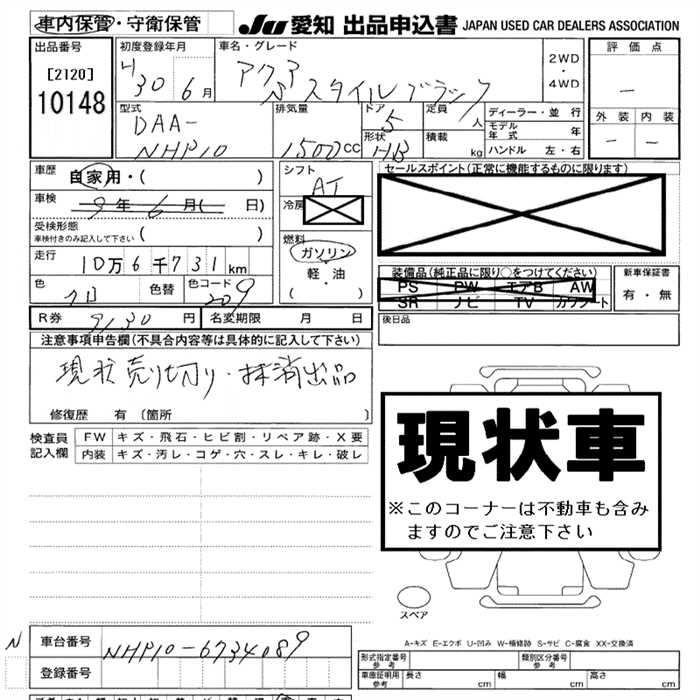 車内保管・守衛保管 JU 愛知 出品申込書 JAPAN USED CAR DEALERS ASSOCIATION
出品番号 初度登録年月 車名・グレード 評価点
[2120] 30 6月 アクア 2WD
10148 Sスタイルブラック ・ 4WD －
型式 排気量 ドア 5 定員 人 ディーラー・並行 外装 内装
DAA- モデル年式 年 － －
NHP10 1500cc 形状 HB 積載 kg ハンドル 左・右
車歴 自家用・( ) シフト AT セールスポイント(正常に機能するものに限ります)
車検 9年 6月( 日) 冷房
受検形態
車検付きのみ記入して下さい ( ) 燃料
走行 10万6千731km ガソリン
軽・油
( ・ )
装備品(純正品に限り○をつけてください) 新車保証書
PS PW エアB AW 有・無
SR ナビ TV カワシート
色 色替 色コード 209
R券 9130円 名変期限 月 日 後日品
注意事項申告欄(不具合内容等は具体的に記入して下さい)
現状売り切り・抹消出品
修復歴 有 〔箇所 〕
検査員 FW キズ・飛石・ヒビ割・リペア跡・X要
記入欄 内装 キズ・汚レ・コゲ・穴・スレ・キレ・破レ
現状車
※このコーナーは不動車も含み
ますのでご注意下さい
スペア
A-キズ E-エクボ U-凹み W-補修跡 S-サビ C-腐食 XX-交換済
N 車台番号 NHP10-6734089
登録番号
形式指定番号 参考 類別区分番号 参考
車庫証明用 参考 長さ cm 幅 cm 高さ cm